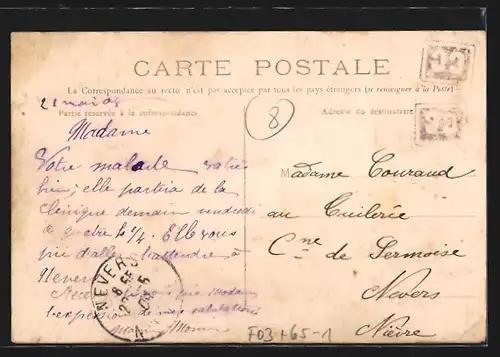 CARTE POSTALE
La Correspondance au recto n'est pas acceptée par tous les pays étrangers (se renseigner à la Poste)
Partie réservée à la correspondance
Adresse du destinataire
21 mai 08
8
Madame
Votre malade
bien; elle partira de la
clinique demain vendredi
Elle vous
prie d'aller l'attendre à
Nevers
Madame
l'expression de mes salutations
NEVERS
Madame Couraud
au Tuilerie
Cne de Sermoise
Nevers
Nièvre
F03+65-1